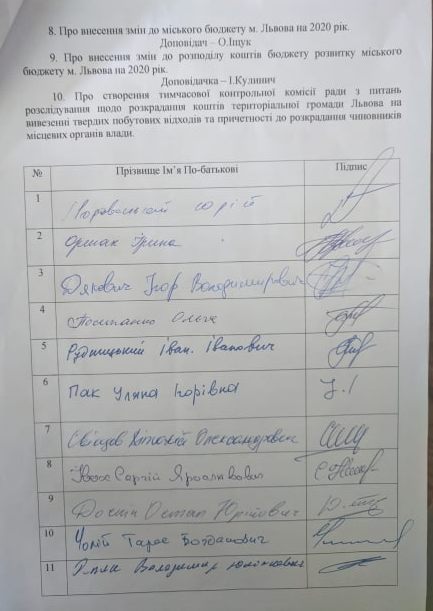 8. Про внесення змін до міського бюджету м. Львова на 2020 рік.
Доповідач – О.Іщук
9. Про внесення змін до розподілу коштів бюджету розвитку міського
бюджету м. Львова на 2020 рік.
Доповідачка – І.Кулинич
10. Про створення тимчасової контрольної комісії ради з питань
розслідування щодо розкрадання коштів територіальної громади Львова на
вивезенні твердих побутових відходів та причетності до розкрадання чиновників
місцевих органів влади.
№ Прізвище Ім'я По-батькові Підпис
1
2 Ірина
3 Дякович Ігор Володимирович
4 Ольга
5 Рудницький Іван Іванович
6 Пак Уляна Ігорівна
7 Олександрович
8 Сергій Ярославович
9 Доскіч Остап Юрійович
10 Чолій Тарас Богданович
11 Володимир